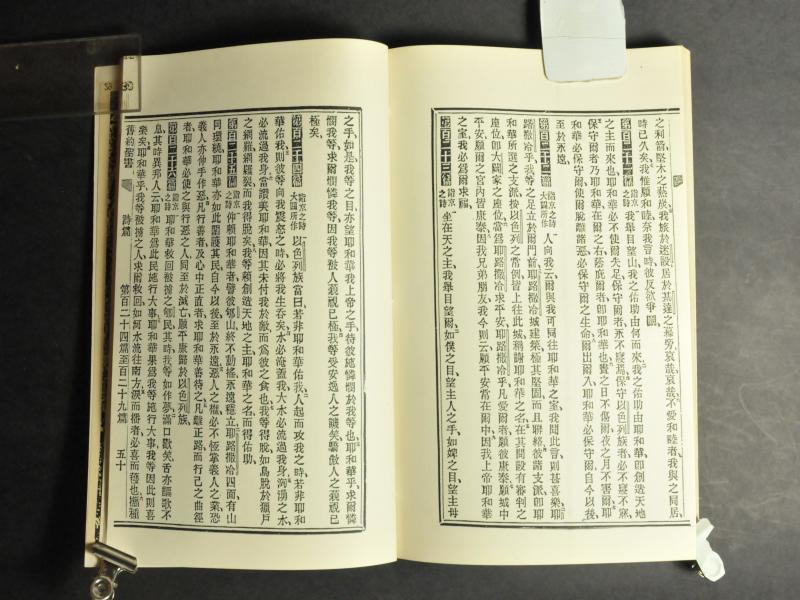 之利箭堅木之𤏲炭我旅於迷設居於其達之穆旁哀哉哀哉不愛和睦者我與之同居
時已久矣我惟願和睦奈我言時彼反欲爭
第百二十一篇 詣京之詩 我舉目望山我之佑助由何而來我之佑助由耶和華即創造天地
之主而來也耶和華必不使爾失足保守爾者永不寢焉保守以色列族者必不寢不寐
保守爾者乃耶和華在爾之右蔭庇爾者即耶和華也晝之日不傷爾夜之月不害爾耶
和華必保守爾使爾脫離諸惡必保守爾之生命爾出爾入耶和華必保守爾自今以後
至於永遠
第百二十二篇 詣京之詩大闢所作 人向我云爾與我可同往耶和華之室我聞此言則甚喜樂耶
路撒冷乎我等之足立於爾門前耶路撒冷城建築極其堅固而且聯絡彼諸支派即耶
和華所選之支派按以色列之常例皆上往此城稱謝耶和華之名在其間設有審判之
座位即大闢家之座位當爲耶路撒冷求平安耶路撒冷乎凡愛爾者願彼康泰願爾城中
平安願爾之宮內皆康泰因我兄弟朋友我今則云願平安當在爾中因我上帝耶和華
之室我必爲爾求福
第百二十三篇 詣京之詩 坐在天之主我舉目望爾如僕之目望主人之手如婢之目望主母
之手如是我等之目亦望耶和華我上帝之手待彼施憐憫於我等也耶和華乎求爾憐
憫我等求爾憐憫我等因我等被人藐視已極我等受安逸人之譏笑驕傲人之藐視已
極矣
第百二十四篇 詣京之詩大闢所作 以色列族當曰若非耶和華佑我人起而攻我之時若非耶和
華佑我則彼等向我震怒之時必將我生吞矣水必淹蓋我大水必流過我身洶湧之水
必流過我身當讚美耶和華因其未付我於敵而爲彼之食也我等得脫如鳥脫於獵戶
之網羅網羅裂而我得脫矣我等賴創造天地之主耶和華之名而得佑助
第百二十五篇 詣京之詩 仰賴耶和華者譬彼郇山終不動搖永遠穩立耶路撒冷四面有山
同環繞耶和華亦如此圍護其民自今以後至於永遠惡人之權必不恆掌義人之業恐
義人亦伸手作惡凡行善者及心中正直者求耶和華善待之凡離正路而行己之曲徑
者耶和華必使之與行惡之人同至於滅亡願平康歸於以色列族
第百二十六篇 詣京之詩 耶和華救回被擄之郇民其時我等如作夢滿口歡笑舌亦謳歌不
息其時異邦人云耶和華爲此民施行大事耶和華果爲我等施行大事我等因此則喜
樂矣耶和華乎我等被擄之人求爾救回如河水流往南方淚而播者必喜而穫也攜種
舊約聖書 詩篇 第百二十四篇至百二十九篇 五十